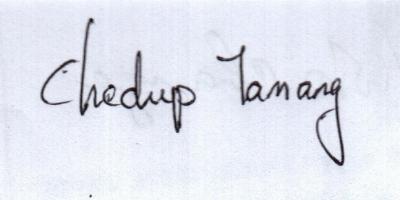 Chedup Tamang